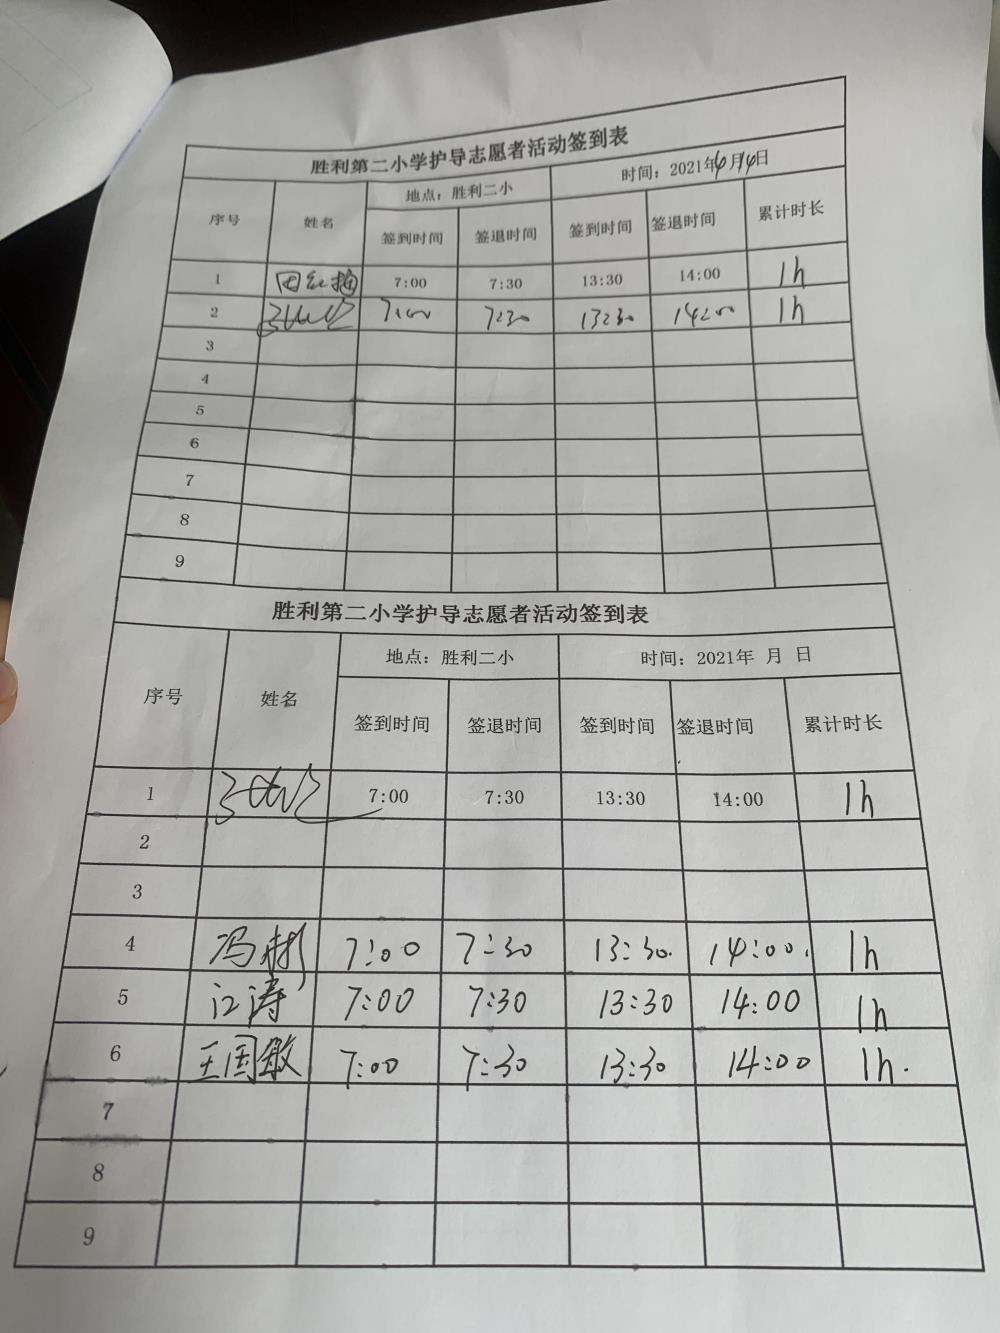 胜利第二小学护导志愿者活动签到表
序号 姓名 地点：胜利二小 时间：2021年4月14日
签到时间 签退时间 签到时间 签退时间 累计时长
1 田红梅 7:00 7:30 13:30 14:00 1h
2 7:00 7:30 13:30 14:00 1h
3
4
5
6
7
8
9
胜利第二小学护导志愿者活动签到表
序号 姓名 地点：胜利二小 时间：2021年 月 日
签到时间 签退时间 签到时间 签退时间 累计时长
1 7:00 7:30 13:30 14:00 1h
2
3
4 冯彬 7:00 7:30 13:30. 14:00. 1h
5 江涛 7:00 7:30 13:30 14:00 1h
6 王国敏 7:00 7:30 13:30 14:00 1h.
7
8
9